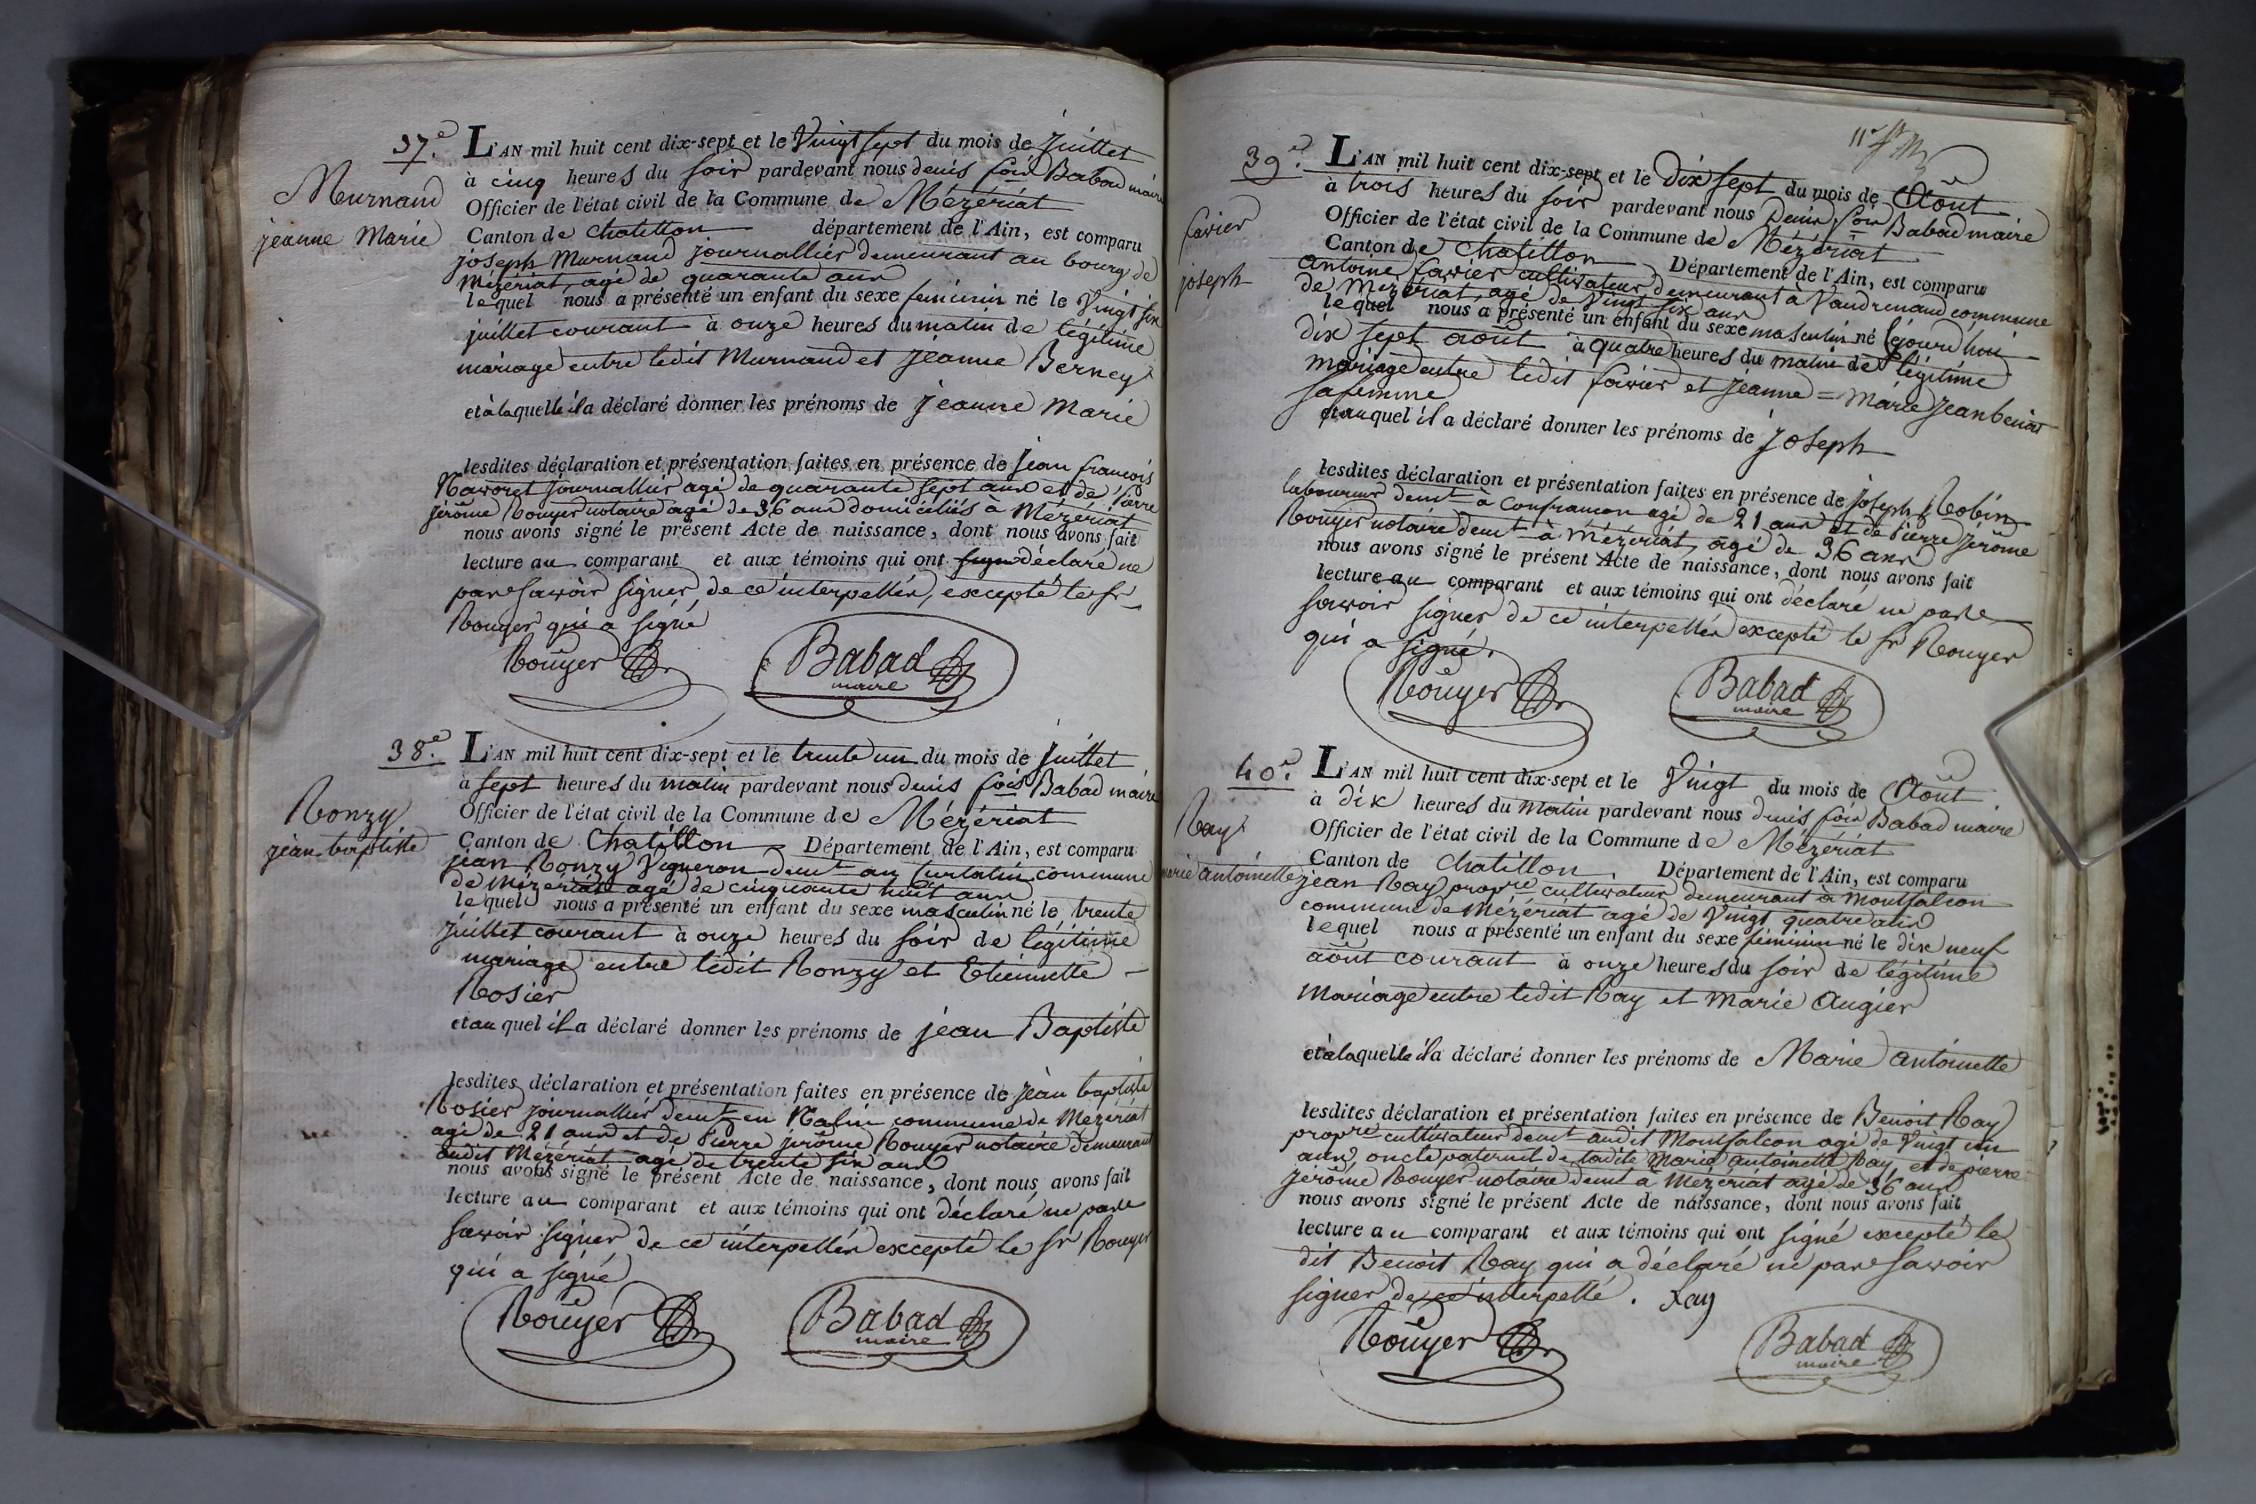 37e.
Murnand
jeanne Marie
L'AN mil huit cent dix-sept et le Vingt sept du mois de juillet
à cinq heures du soir pardevant nous denis fois Babad maire
Officier de l'état civil de la Commune de Mézériat
Canton de chatillon département de l'Ain, est comparu
joseph Murnand journallier demeurant au bourg de
Mézériat, agé de quarante ans
lequel nous a présenté un enfant du sexe feminin né le Vingt six
juillet courant à onze heures du matin de légitime
mariage entre ledit Murnand et jeanne Berney
et à laquelle il a déclaré donner les prénoms de jeanne Marie
lesdites déclaration et présentation faites en présence de jean françois
journallier agé de quarante sept ans et de Pierre
jérôme Rouyer notaire agé de 36 ans domiciliés à Mézériat
nous avons signé le présent Acte de naissance, dont nous avons fait
lecture au comparant et aux témoins qui ont déclaré ne
pas savoir signer de ce interpellés, excepté le sr
Rouyer qui a signé
Rouyer Babad
maire
38e.
Ronzy
jean baptiste
L'AN mil huit cent dix-sept et le trente un du mois de juillet
à sept heures du matin pardevant nous denis fois Babad maire
Officier de l'état civil de la Commune de Mézériat
Canton de Chatillon Département de l'Ain, est comparu
jean Ronzy Vigneron demt au Curtatin commune
de Mézériat agé de cinquante huit ans
lequel nous a présenté un enfant du sexe masculin né le trente
juillet courant à onze heures du soir de légitime
mariage entre ledit Ronzy et Etiennette
Rosier
et au quel il a déclaré donner les prénoms de jean Baptiste
lesdites déclaration et présentation faites en présence de jean baptiste
Rosier journallier demt en commune de Mézériat
agé de 21 ans et de Pierre jérôme Rouyer notaire demeurant
audit Mézériat agé de trente six ans
nous avons signé le présent Acte de naissance, dont nous avons fait
lecture au comparant et aux témoins qui ont déclaré ne pas
savoir signer de ce interpellés excepté le sr Rouyer
qui a signé
Rouyer Babad
maire
11e
39e.
favier
joseph
L'AN mil huit cent dix-sept et le dix sept du mois de Août
à trois heures du soir pardevant nous Denis fois Babad maire
Officier de l'état civil de la Commune de Mézériat
Canton de chatillon Département de l'Ain, est comparu
antoine favier cultivateur demeurant à Vaudrenand commune
de Mézériat, agé de Vingt six ans
lequel nous a présenté un enfant du sexe masculin né cejourd'hui
dix sept août à quatre heures du matin de légitime
mariage entre ledit favier et jeanne = marie jeanbenoit
sa femme
et au quel il a déclaré donner les prénoms de joseph
lesdites déclaration et présentation faites en présence de joseph Robin
laboureur demt à Confrancon agé de 21 ans et de Pierre jérôme
Rouyer notaire demt à Mézériat, agé de 36 ans
nous avons signé le présent Acte de naissance, dont nous avons fait
lecture au comparant et aux témoins qui ont déclaré ne pas
savoir signer de ce interpellés excepté le sr Rouyer
qui a signé.
Rouyer Babad
maire
40e.
Ray
marie antoinette
L'AN mil huit cent dix-sept et le Vingt du mois de Août
à dix heures du matin pardevant nous denis fois Babad maire
Officier de l'état civil de la Commune de Mézériat
Canton de chatillon. Département de l'Ain, est comparu
jean Ray propre cultivateur demeurant à Montfalcon
commune de Mézériat agé de Vingt quatre ans
lequel nous a présenté un enfant du sexe féminin né le dix neuf
août courant à onze heures du soir de légitime
Mariage entre ledit Ray et marie Augier
et à laquelle il a déclaré donner les prénoms de Marie antoinette
lesdites déclaration et présentation faites en présence de Benoit Ray
propre cultivateur demt audit Montfalcon agé de Vingt un
ans, oncle paternel de ladite Marie antoinette Ray, et de pierre
jérôme Rouyer notaire demt à Mézériat agé de 36 ans
nous avons signé le présent Acte de naissance, dont nous avons fait
lecture au comparant et aux témoins qui ont signé excepté le
dit Benoit Ray qui a déclaré ne pas savoir
signer de ce interpellé. Ray
Rouyer Babad
maire